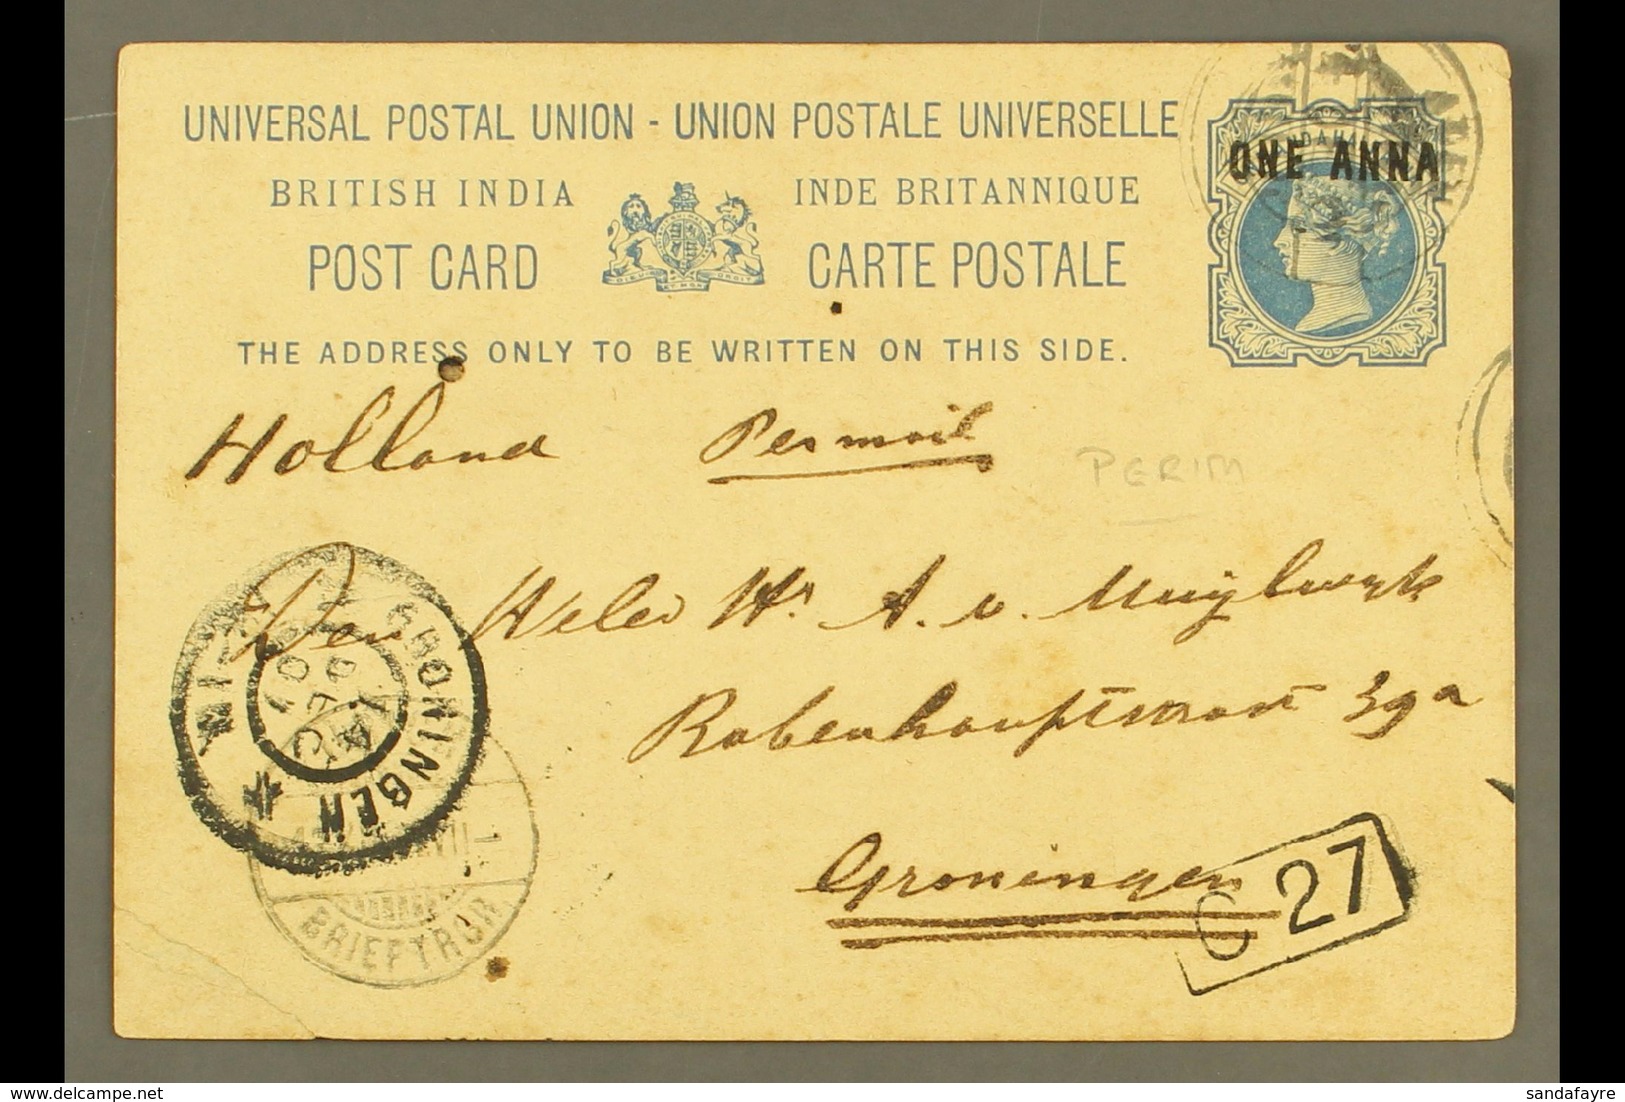 UNIVERSAL POSTAL UNION - UNION POSTALE UNIVERSELLE
BRITISH INDIA INDE BRITANNIQUE
POST CARD CARTE POSTALE
THE ADDRESS ONLY TO BE WRITTEN ON THIS SIDE.
ONE ANNA
ADEN
Holland Per mail
PERIM
Den Heer A. v. Muijlwijk
Rabenhauptstraat 39a
Groningen
C 27
GRONINGEN
14 DEC
BRIEFTRGR
sandafayre